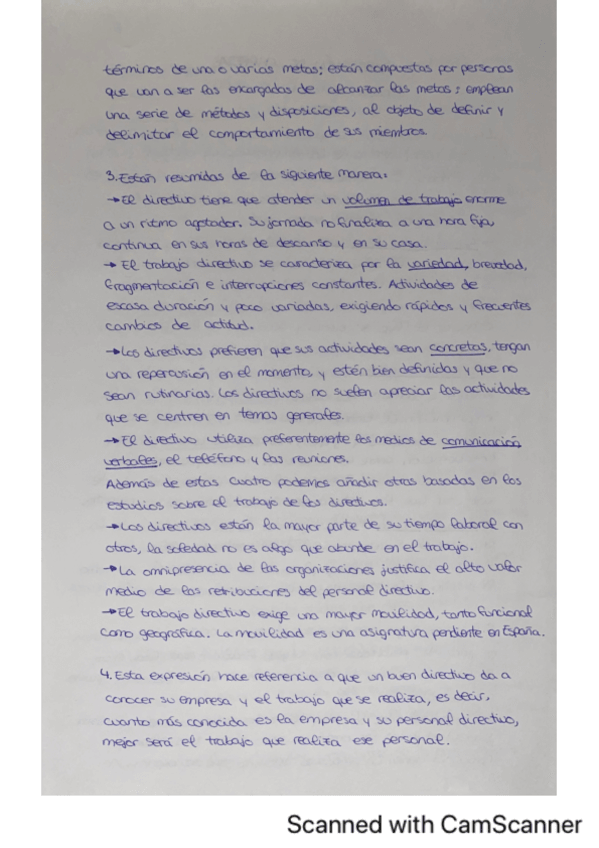 términos de una o varias metas; están compuestas por personas
que van a ser las encargadas de alcanzar las metas; emplean
una serie de métodos y disposiciones, al objeto de definir y
delimitar el comportamiento de sus miembros.
3. Están resumidas de la siguiente manera:
→ El directivo tiene que atender un volumen de trabajo enorme
a un ritmo agotador. Su jornada no finaliza a una hora fija,
continua en sus horas de descanso y en su casa.
→ El trabajo directivo se caracteriza por la variedad, brevedad,
fragmentación e interrupciones constantes. Actividades de
escasa duración y poco variadas, exigiendo rápidos y frecuentes
cambios de actitud.
→ Los directivos prefieren que sus actividades sean concretas, tengan
una repercusión en el momento, y estén bien definidas y que no
sean rutinarias. Los directivos no suelen apreciar las actividades
que se centren en temas generales.
→ El directivo utiliza preferentemente los medios de comunicación
verbales, el teléfono y las reuniones.
Además de estas cuatro podemos añadir otras basadas en los
estudios sobre el trabajo de los directivos.
→ Los directivos están la mayor parte de su tiempo laboral con
otros, la soledad no es algo que abunde en el trabajo.
→ La omnipresencia de las organizaciones justifica el alto valor
medio de las retribuciones del personal directivo.
→ El trabajo directivo exige una mayor movilidad, tanto funcional
como geográfica. La movilidad es una asignatura pendiente en España.
4. Esta expresión hace referencia a que un buen directivo da a
conocer su empresa y el trabajo que se realiza, es decir,
cuanto más conocida es la empresa y su personal directivo,
mejor será el trabajo que realiza ese personal.
Scanned with CamScanner